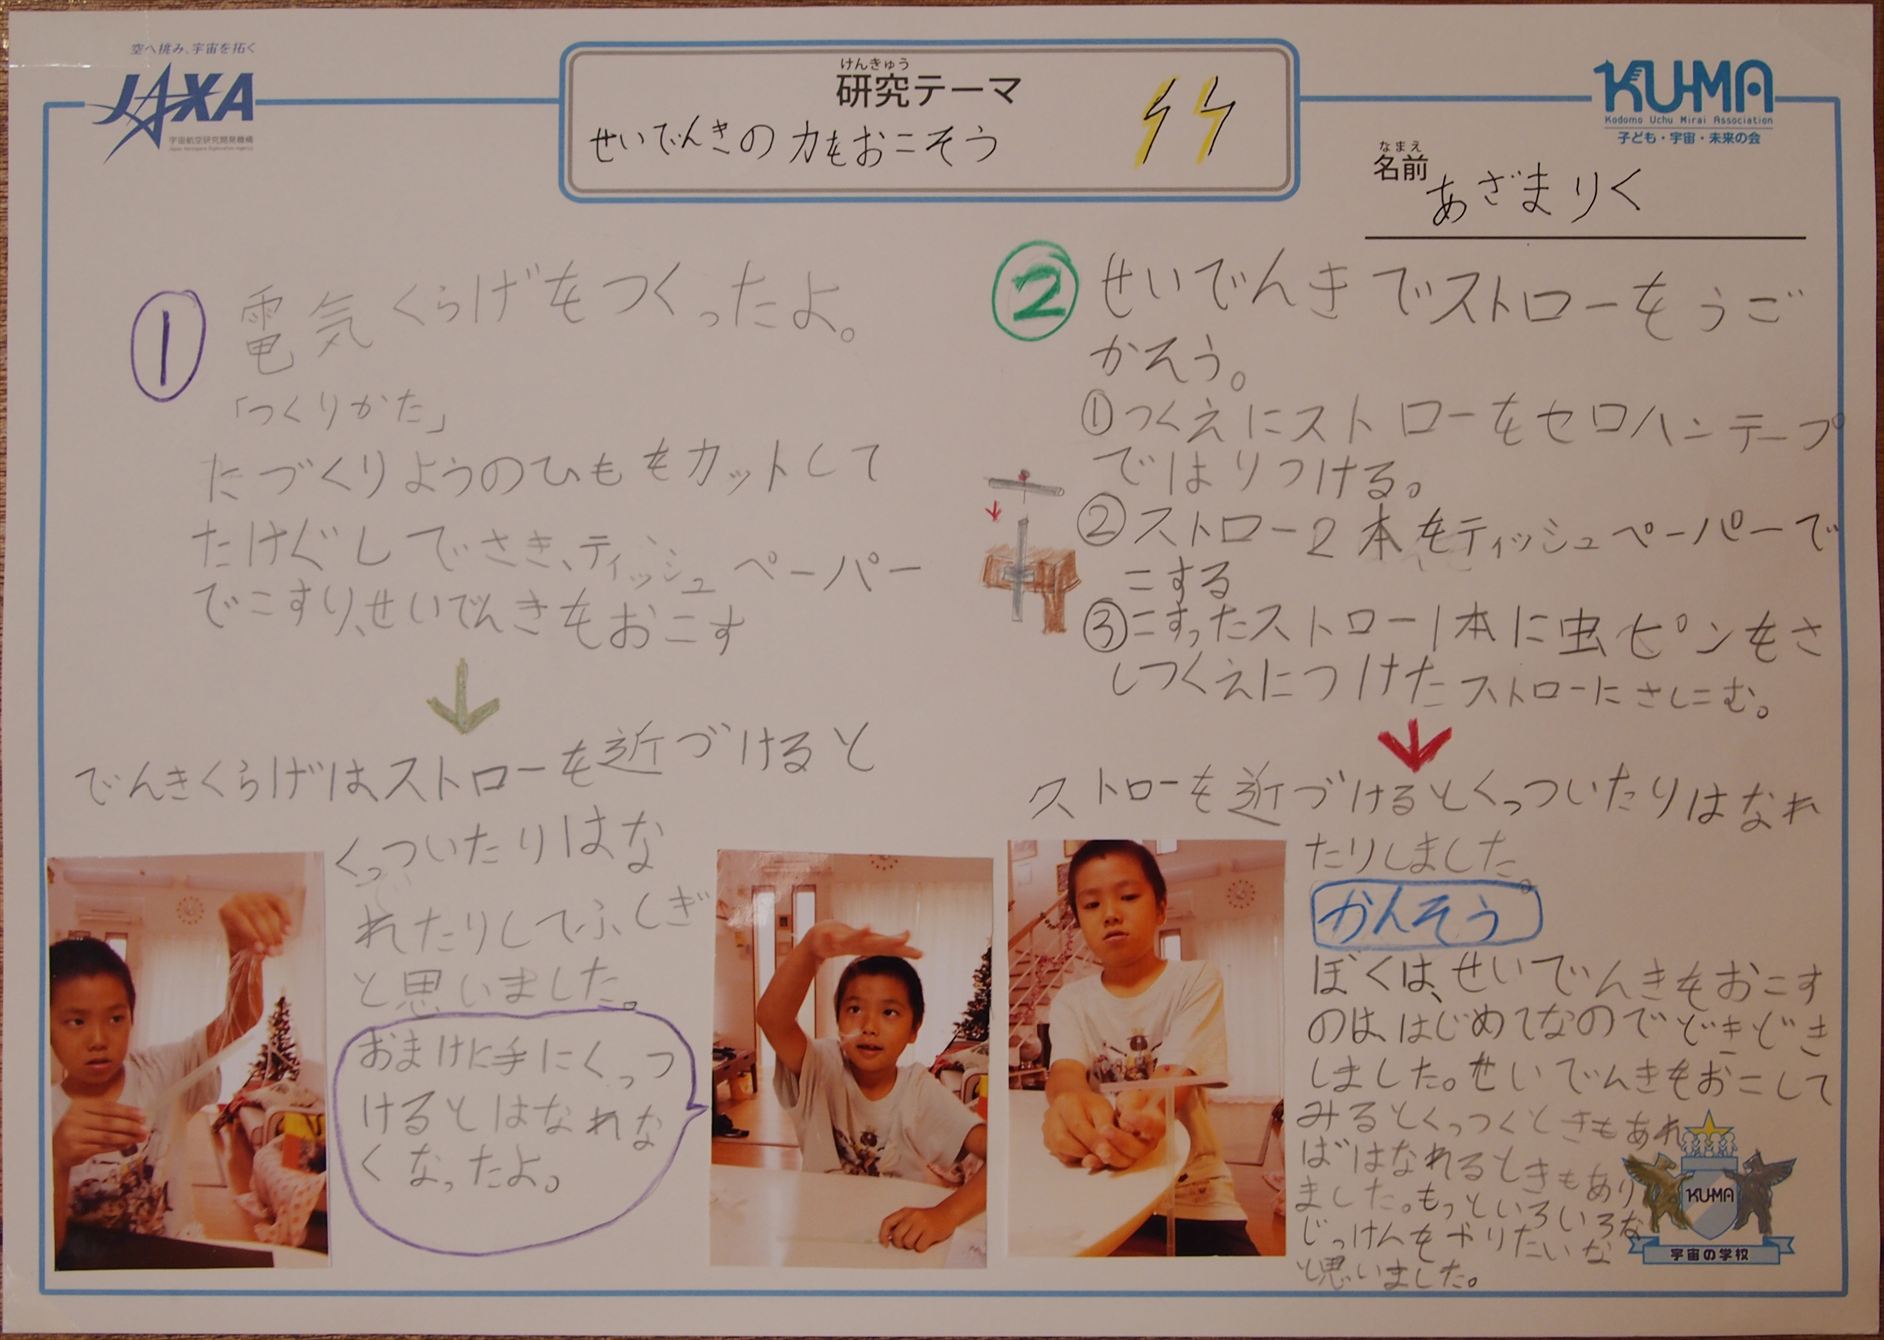 空へ挑み、宇宙を拓く
JAXA
宇宙航空研究開発機構
Japan Aerospace Exploration Agency
けんきゅう
研究テーマ
せいでんきの力をおこそう
KU-MA
Kodomo Uchu Mirai Association
子ども・宇宙・未来の会
なまえ
名前
あざまりく
① 電気くらげをつくったよ。
「つくりかた」
たづくりようのひもをカットして
たけぐしでさき、ティッシュペーパー
でこすり、せいでんきをおこす
でんきくらげは、ストローを近づけると
くっついたりはな
れたりしてふしぎ
と思いました。
おまけに手にくっつ
けるとはなれな
くなったよ。
② せいでんきでストローをうご
かそう。
①つくえにストローをセロハンテープ
ではりつける。
②ストロー2本をティッシュペーパーで
こする
③こすったストロー1本に虫ピンをさ
しつくえにつけたストローにさしこむ。
ストローを近づけるとくっついたりはなれ
たりしました。
かんそう
ぼくは、せいでんきをおこす
のは、はじめてなのでどきどき
しました。せいでんきをおこして
みるとくっつくときもあれ
ばはなれるときもあり
ました。もっといろいろな
じっけんをやりたいな
と思いました。
KU-MA
宇宙の学校